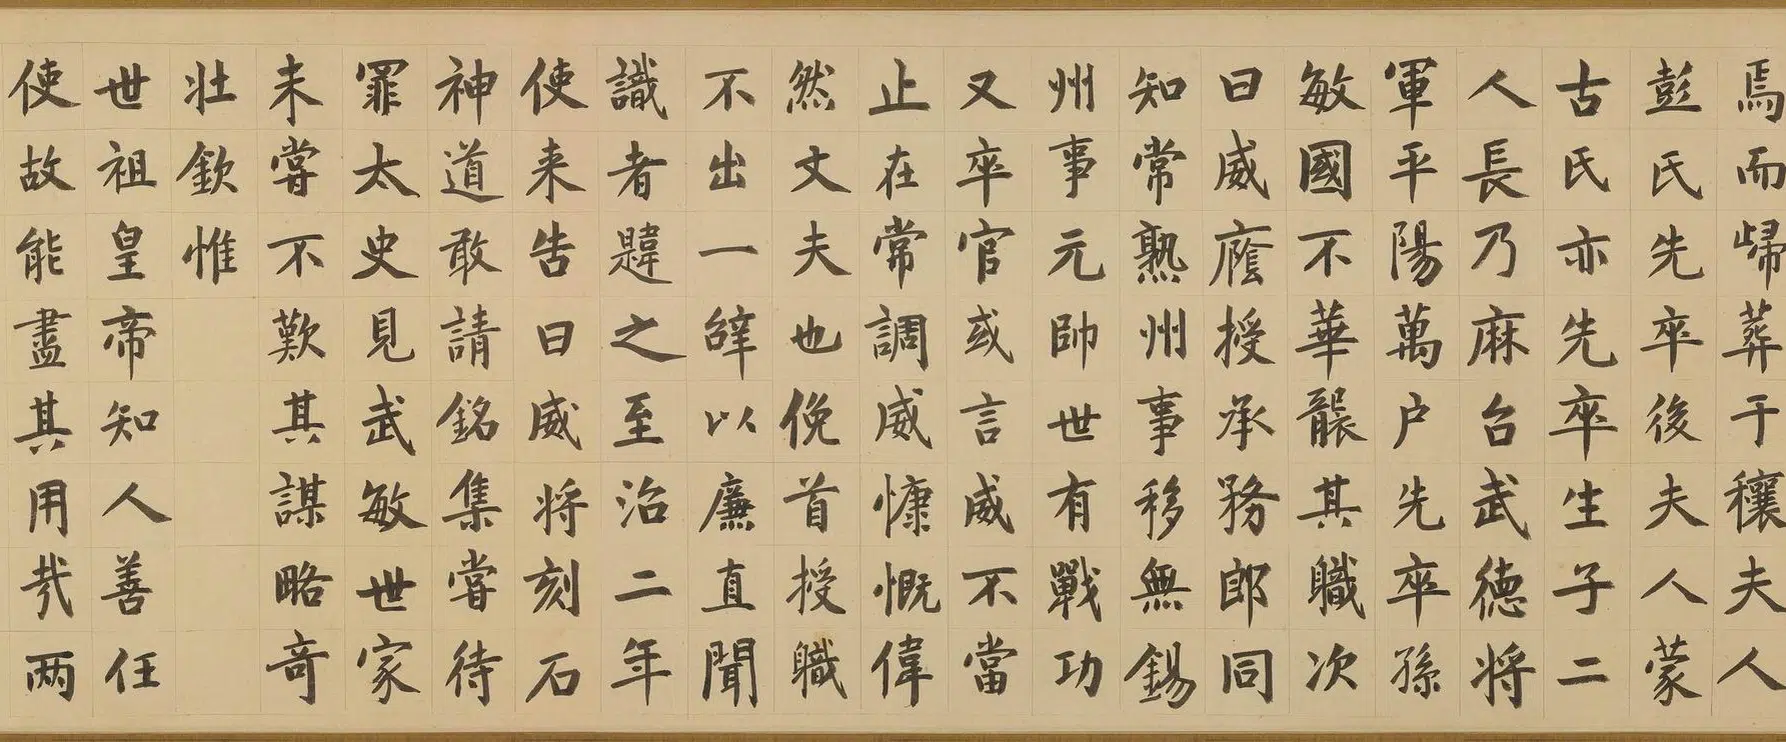 焉而歸葬于穰夫人
彭氏先卒後夫人蒙
古氏亦先卒生子二
人長乃麻台武德將
軍平陽萬户先卒孫
敏國不華襲其職次
曰威廕授承務郎同
知常熟州事移無錫
州事元帥世有戰功
又卒官或言威不當
止在常調威慷慨偉
然文夫也俛首授職
不出一辤以廉直聞
識者韙之至治二年
使来告曰威将刻石
神道敢請銘集嘗待
罪太史見武敏世家
未嘗不歎其謀略竒
壮欽惟
世祖皇帝知人善任
使故能盡其用㢤两